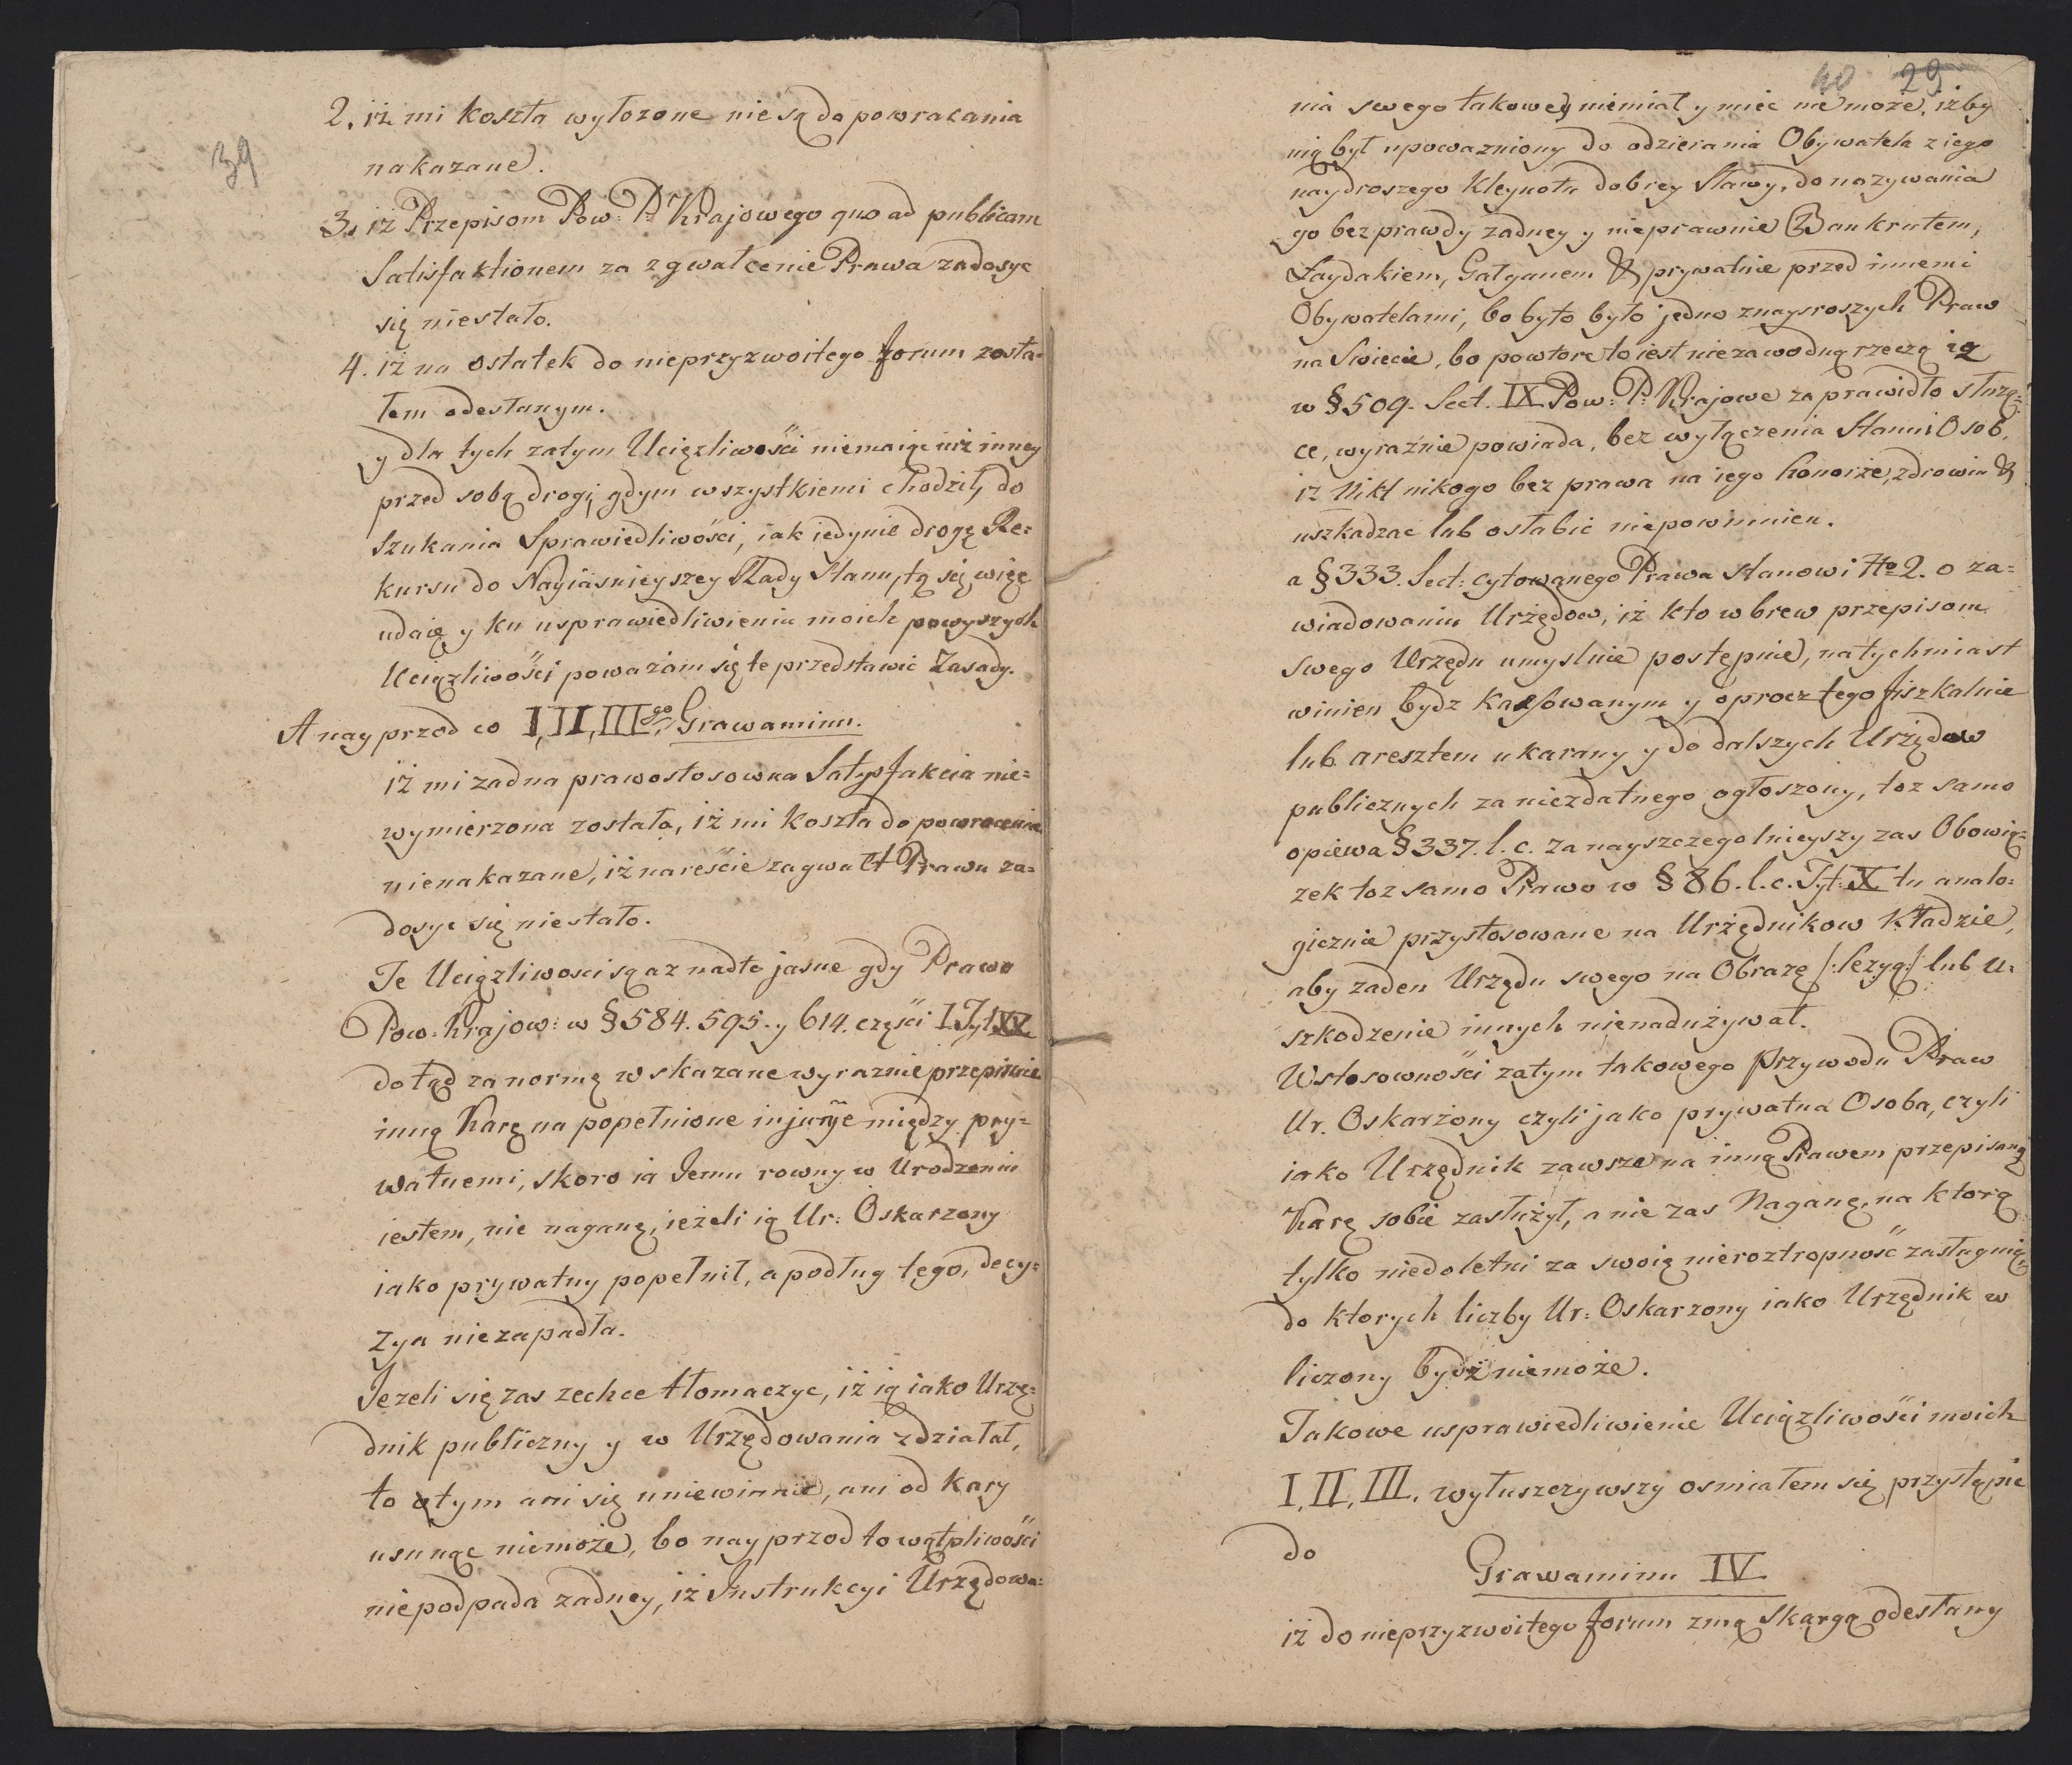 39
2. iż mi koszta wyłozone nie są do powracania
nakazane.
3. iż Przepisom Pow: P: Krajowego quo ad publicam
Satisfaktionem za zgwałcenie Prawa zadosyc
się niestało.
4. iż na ostatek do nieprzyzwoitego forum zosta=
łem odesłanym.
y dla tych zatym Uciązliwości niemaiąc iuż inney
przed sobą drogi, gdym wszystkiemi chodził, do
Szukania Sprawiedliwości, iak iedynie drogę Re=
kursu do Nayiaśnieyszey Rady Stanu, tą się więc
udaię y ku usprawiedliwieniu moich powyszych
Uciązliwości poważam się te przedstawić Zasady.
A nayprzod co I, II, III go Grawaminu.
iż mi zadna prawostosowna Satysfakcia nie=
wymierzona została, iż mi koszta do powrocenia
nienakazane, iż nareście za gwałt Prawu za=
dosyc się niestało.
Te Uciązliwosci są az nadto jasne gdy Prawo
Pow: Krajow: w § 584. 595. y 614. części I Tyt XX
dotąd za normę wskazane wyraznie przepisuie
inną Karę na popełnione injurye między pry=
watnemi, skoro ia Jemu rowny w Urodzeniu
iestem, nie naganę, ieżeli ią Ur: Oskarzony
iako prywatny popełnił, a podług tego, decy=
zya niezapadła.
Jezeli się zas zechce tłomaczyc, iż ią iako Urzę=
dnik publiczny y w Urzędowaniu zdziałał,
to y tym ani się uniewinnić, ani od kary
usunąc niemoże, bo nayprzod to wątpliwości
niepodpada zadney, iż Instrukcyi Urzędowa=
40 29
nia swego takowey niemiał y miec nie moze, iżby
nią był upowazniony do odzierania Obywatela z iego
naydroszego Kleynotu dobrey Sławy, do nazywania
go bez prawdy zadney y nieprawnie Bankrutem,
Łaydakiem, Gałganem & prywatnie przed innemi
Obywatelami, bo byto było jedno znaysroszych Praw
na Swiecie, bo powtore to iest niezawodną rzeczą iż
w § 509. Sect. IX Pow: P: Krajowe za prawidło służą=
ce, wyraźnie powiada, bez wyłączenia Stanu i Osob,
iż Nikt nikogo bez prawa na iego honorze, zdrowiu &
uszkadzac lub osłabić niepowinnien.
a § 333. Sect: cytowanego Prawa stanowi Ho 2. o za=
wiadowaniu Urzędow, iż kto wbrew przepisom
swego Urzędu umyslnie postępuie, natychmiast
winien bydz kassowanym y oprocz tego fiszkalnie
lub aresztem ukarany y do dalszych Urzędow
publicznych za niezdatnego ogłoszony, toz samo
opiewa § 337. l. c. Za nayszczegolnieyszy zas Obowią=
zek toz samo Prawo w § 86. l. c. Tyt: X tu analo=
gicznie przystosowane na Urzędnikow kładzie,
aby zaden Urzędu swego na Obrazę /: Lezyą :/ lub U=
szkodzenie innych nienadużywał.
W stosowności zatym takowego przywodu Praw
Ur. Oskarżony czyli jako prywatna Osoba, czyli
iako Urzędnik zawsze na inną Prawem przepisaną
Karę sobie zasłużył, a nie zas Naganę, na ktorą
tylko niedoletni za swoię nieroztropność zasługuią,
do ktorych liczby Ur: Oskarzony iako Urzędnik w
liczony bydź niemoże.
Takowe usprawiedliwienie Uciązliwości moich
I, II, III. wyłuszczywszy osmiałem się przystępuie
do
Grawaminu IV
iż do nieprzyzwoitego forum zmą Skargą odesłany